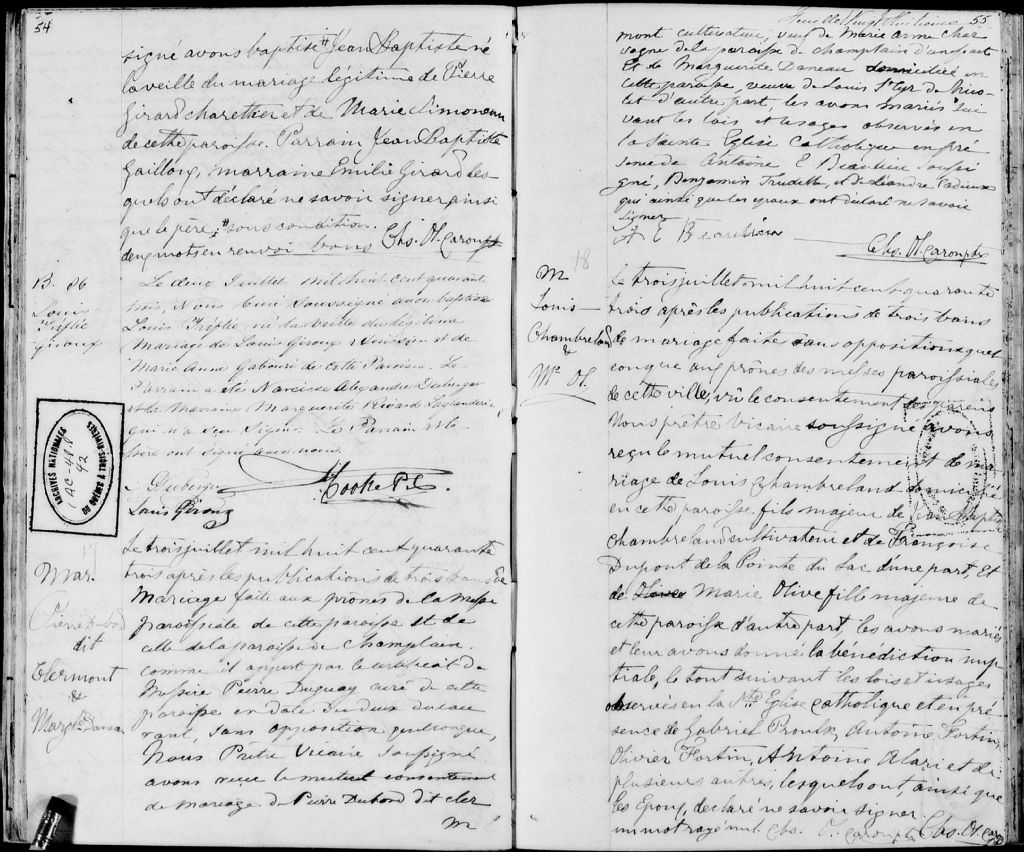 54
signé avons baptisé # Jean Baptiste né
la veille du mariage légitime de Pierre
Girard charettier et de Marie Simoneau
de cette paroisse. Parrain Jean Baptiste
Gailloux, marraine Emilie Girard les-
quels ont déclaré ne savoir signer, ainsi
que le père; # sous condition.
deux mots en renvoi bons Chs. Ol. Caron ptre
B. 86
Louis
Tréflé
Giroux
Le deux Juillet mil huit cent quarante
trois, Nous Curé Soussigné avons baptisé
Louis Tréflé né la veille du légitime
Mariage de Louis Giroux Menuisier et de
Marie Anne Gaboury de cette Paroisse. Le
Parrain a été Narcisse Alexandre Duberger
et la Marraine Marguerite Ricard Laglanderie
qui n'a su signer. Le Parrain et le
Père ont signé avec nous.
Duberger
Louis Giroux
Cooke P.C.
ARCHIVES NATIONALES
DU QUÉBEC À TROIS-RIVIÈRES
AC-48
92
17
Mar.
Pierre Dubord
dit
Clermont
&
Margte Daneau
Le trois juillet mil huit cent quarante
trois après les publications de trois bans de
Mariage faite aux prones de la messe
paroissiale de cette paroisse et de
celle de la paroisse de Champlain.
comme il appert par le certificat de
Messire Pierre Duguay curé de cette
paroisse en date du deux du cou
rant, sans opposition quelconque,
Nous Prêtre Vicaire soussigné
avons reçu le mutuel consentement
de mariage de Pierre Dubord dit cler
m
feuillet Vingt huitième 55
mont cultivateur, veuf de Marie anne Char
vagne de la paroisse de champlain d'une part
Et de Marguerite Daneau domiciliée en
cette paroisse, veuve de Louis St Cyr de Nico-
let d'autre part, les avons mariés sui
vant les lois et usages observés en
la Sainte Eglise Catholique en pré
sence de Antoine E Beaulieu soussi
gné, Benjamin Trudelle, et de Léandre Cadieux
qui ainsi que les époux ont déclaré ne savoir
signer
A E Beaulieu
Chs. Ol. Caron ptre
18
M
Louis
Chambreland
&
Me Ol.
Le trois juillet mil huit cent quarante
trois après les publications de trois bans
de mariage faite sans opposition quel
conque aux prônes des messes paroissiales
de cette ville, vû le consentement des parens
Nous prêtre vicaire soussigné avons
reçu le mutuel consentement de ma
riage de Louis Chambreland domicilié
en cette paroisse fils majeur de Jean Baptiste
Chambreland cultivateur et de Françoise
Dupont de la Pointe du Lac d'une part, Et
de Marie Olive fille majeure de
cette paroisse d'autre part, les avons mariés
et leur avons donné la bénédiction nup
tiale, le tout suivant les lois et usages
observés en la Ste Eglise Catholique et en pré
sence de Gabriel Proulx, Antoine Fortin,
Olivier Fortin, Antoine Alari et de
plusieurs autres, lesquels ont, ainsi que
les Epoux, déclaré ne savoir signer.
un mot rayé nul. Chs. O. Caron ptre Chs. Ol. Caron